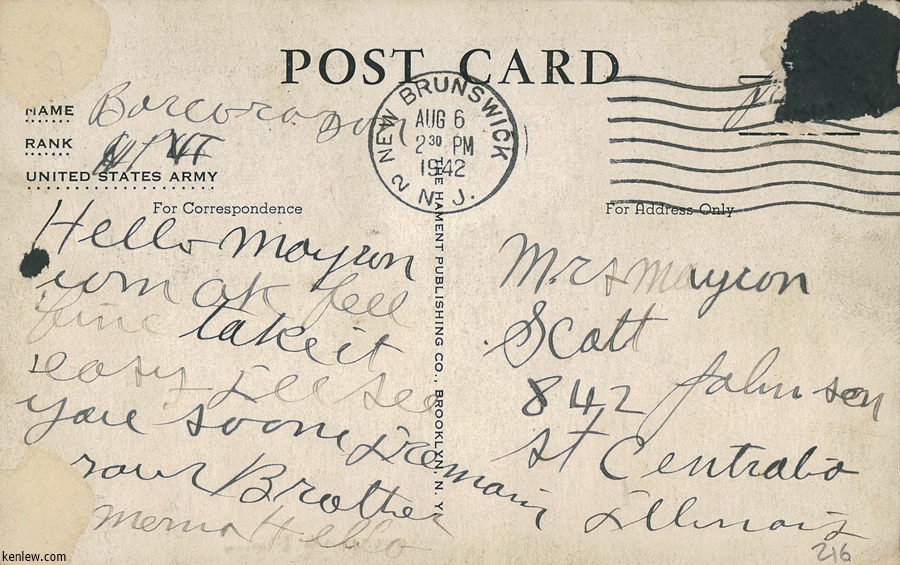 POST CARD
NAME
RANK
UNITED STATES ARMY
NEW BRUNSWICK
AUG 6
2 30 PM
1942
2 N. J.
For Correspondence
For Address Only
THE HAMENT PUBLISHING CO., BROOKLYN, N. Y.
Hello mayron
iom ok feel
fine take it
easy I'll see
you soon I remain
your Brother
Hello
Mrs mayron
Scott
842 Johnson
st Centralia
Illinois
216
kenlew.com